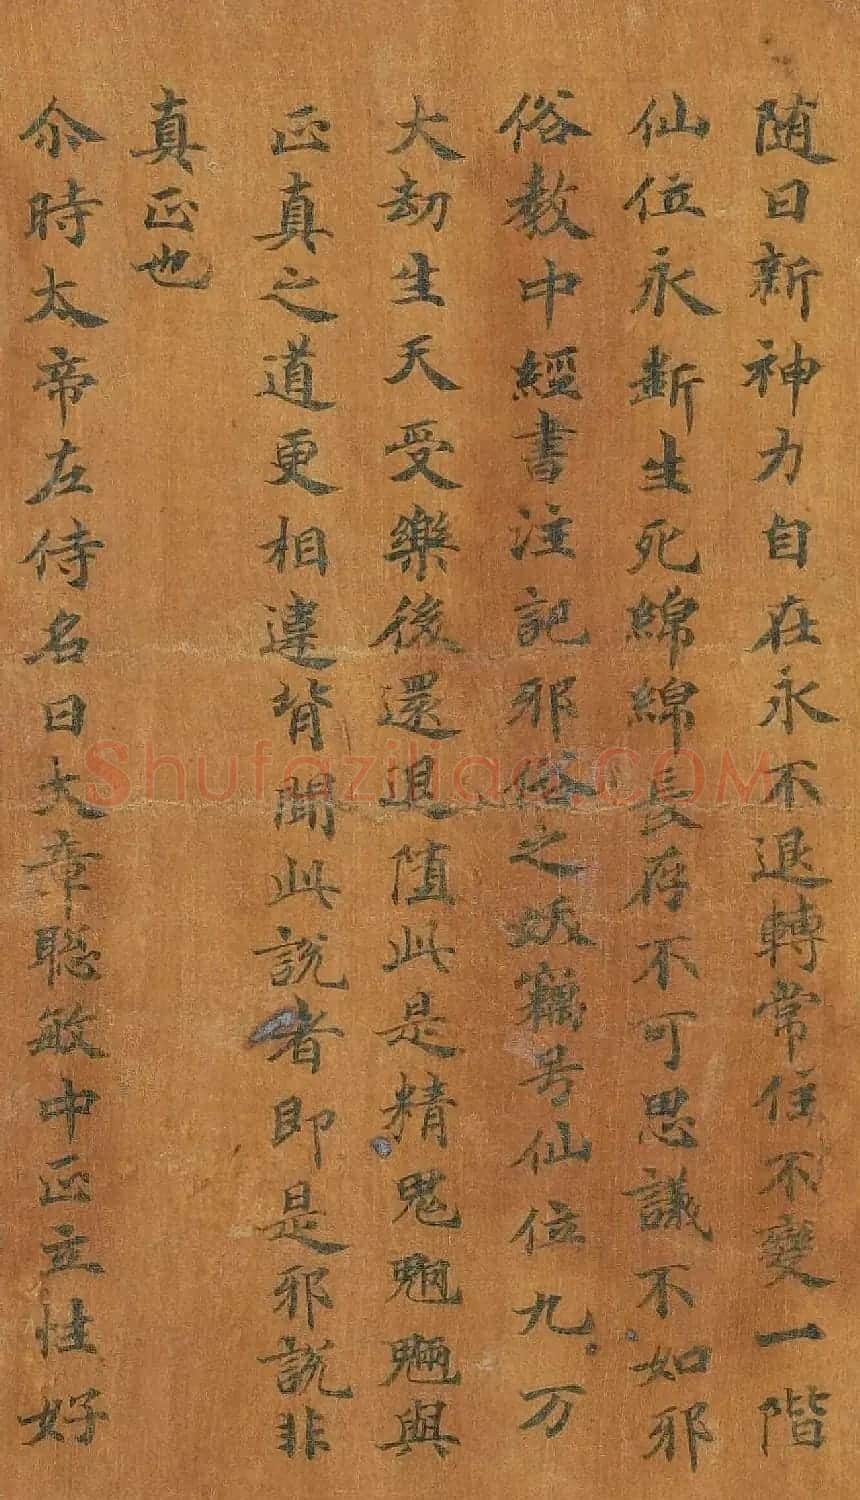 随日新神力自在永不退轉常住不變一階
仙位永斷生死綿綿長存不可思議不如邪
俗教中經書注記邪俗之妖竊号仙位九万
大劫生天受樂後還退堕此是精鬼魍魎與
正真之道更相違背聞此說者即是邪說非
真正也
尒時太帝左侍名曰大章聡敏中正立性好
Shufaziliao.COM